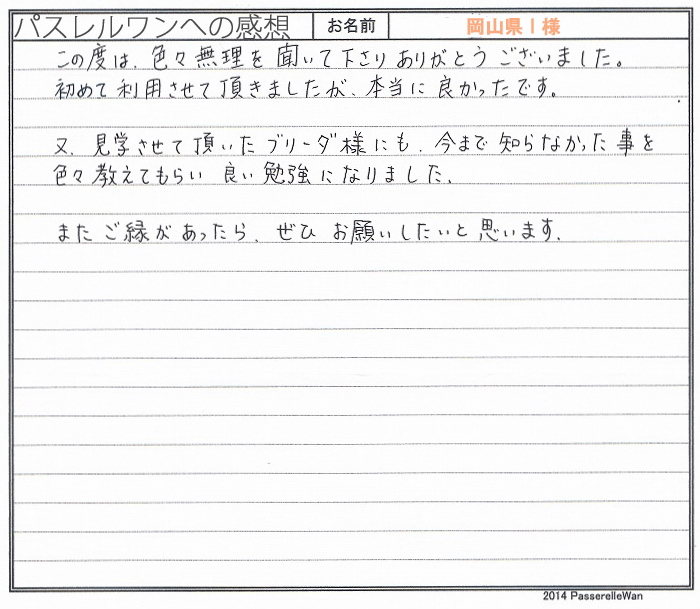 パスレルワンへの感想 お名前 岡山県I様
この度は、色々無理を聞いて下さりありがとうございました。
初めて利用させて頂きましたが、本当に良かったです。
又、見学させて頂いたブリーダ様にも、今まで知らなかった事を
色々教えてもらい良い勉強になりました、
またご縁があったら、ぜひお願いしたいと思います.
2014 PasserelleWan